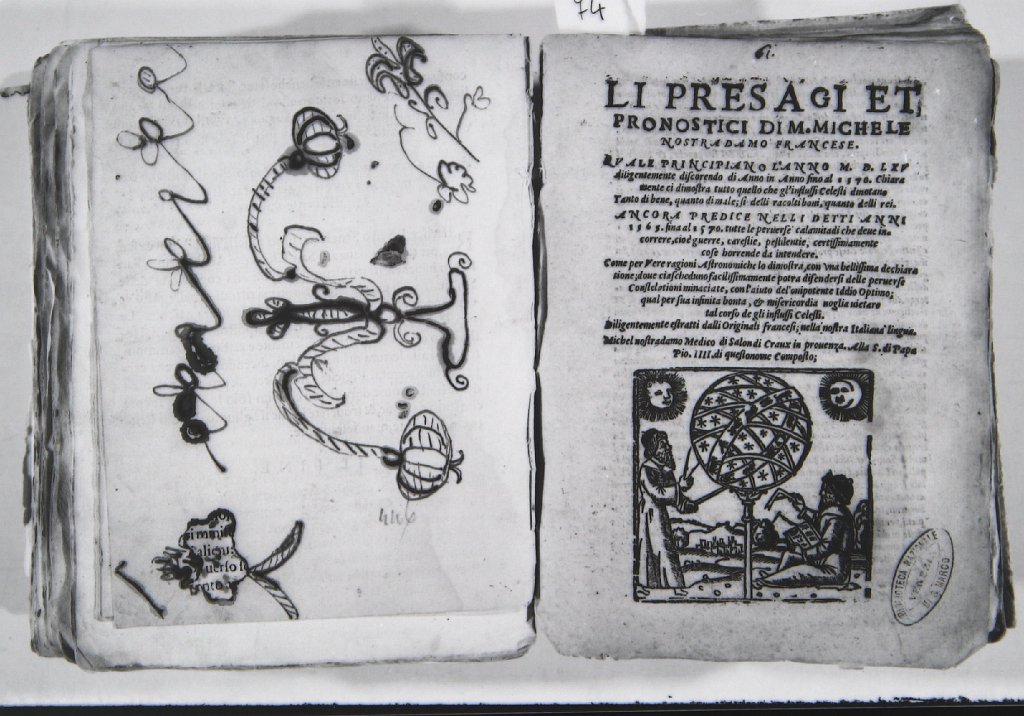 74
446
simmi
61.
LI PRESAGI ET,
PRONOSTICI DI M. MICHELE
NOSTRADAMO FRANCESE.
QVALE PRINCIPIANO L'ANNO M. D. LXV
diligentemente discorendo di Anno in Anno fino al 1570. Chiara
mente ci dimostra tutto quello che gl'influssi Celesti dinotano
Tanto di bene, quanto di male; sì delli racolti boni, quanto delli rei.
ANCORA PREDICE NELLI DETTI ANNI
1565. fina al 1570. tutte le peruerse calamitadi che deue in-
correre, cioè guerre, carestie, pestilentie, certissimamente
cose horrende da intendere.
Come per Vere ragioni Astronomiche lo dimostra, con vna bellissima dechiara
tione; doue ciascheduno facilissimamente potra difendersi delle peruerse
Constelationi minaciate, con l'aiuto del'onipotente Iddio Optimo;
qual per sua infinita bonta, & misericordia voglia vietare
tal corso de gli influssi Celesti.
Diligentemente estratti dalli Originali francesi; nella nostra Italiana lingua.
Michel nostradamo Medico di Salon di Craux in prouenza. Alla S. di Papa
Pio. IIII. di questo nome Composto;
BIBLIOTECA NAZIONALE
DI S. MARCO